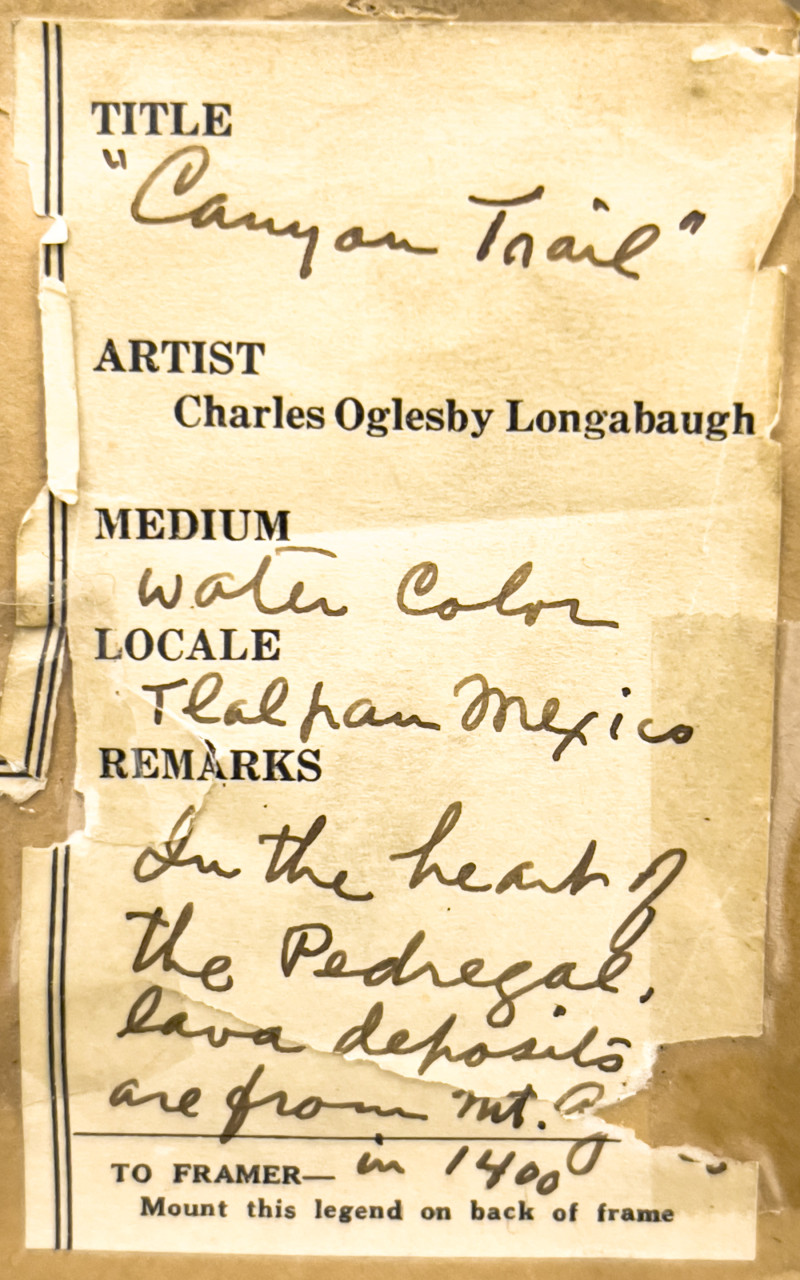 TITLE
"Canyon Trail"
ARTIST
Charles Oglesby Longabaugh
MEDIUM
Water Color
LOCALE
Tlalpan Mexico
REMARKS
In the heart of
the Pedregal,
lava deposits
are from Mt.
in 1400
TO FRAMER—
Mount this legend on back of frame